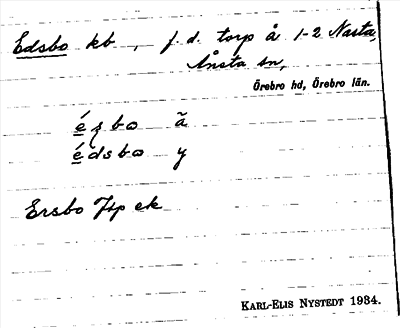 Edsbo kb, f. d. torp å 1-2 Nasta,
Ånsta sn,
Örebro hd, Örebro län.
é̲ʂbo ã
é̲dsbo y
Ersbo Jfp ek
KARL-ELIS NYSTEDT 1934.